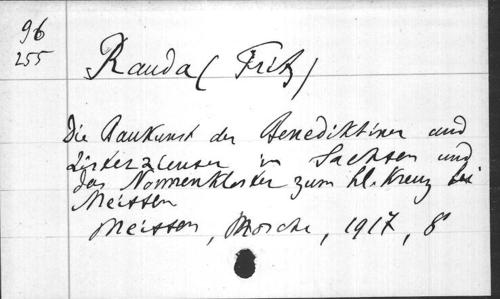 96
255
Rauda (Fritz)
Die Baukunst der Benediktiner und
Zisterzienser in Sachsen und
das Nonnenkloster zum hl. Kreuz bei
Meissen
Meissen, 1917, 8°